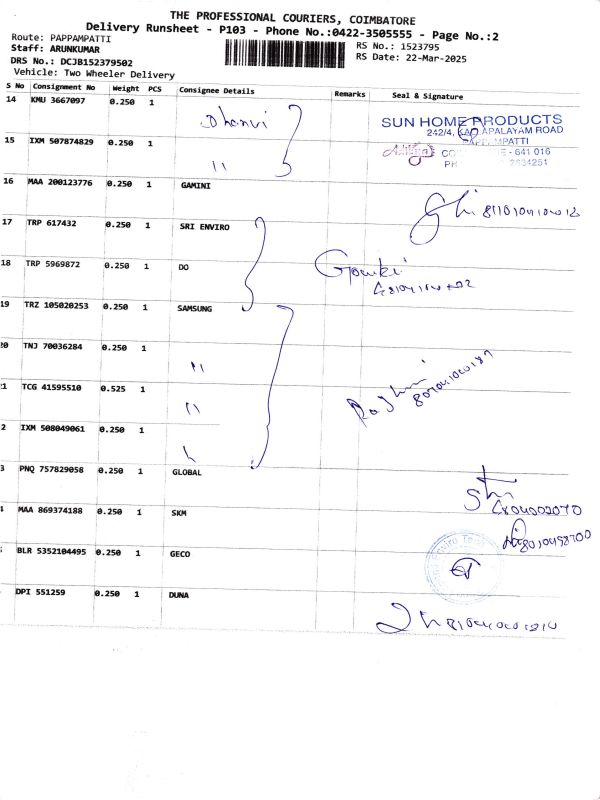 THE PROFESSIONAL COURIERS, COIMBATORE
Delivery Runsheet - P103 - Phone No.:0422-3505555 - Page No.:2
Route: PAPPAMPATTI
RS No.: 1523795
Staff: ARUNKUMAR
RS Date: 22-Mar-2025
DRS No.: DCJB152379502
Vehicle: Two Wheeler Delivery
S No Consignment No Weight PCS Consignee Details Remarks Seal & Signature
14 KMU 3667097 0.250 1 Dhanvi
SUN HOME PRODUCTS
APALAYAM ROAD
15 IXM 507874829 0.250 1 "
PAPPAMPATTI
- 641 016
PH 2634251
16 MAA 200123776 0.250 1 GAMINI
17 TRP 617432 0.250 1 SRI ENVIRO
18 TRP 5969872 0.250 1 DO
19 TRZ 105020253 0.250 1 SAMSUNG
20 TNJ 70036284 0.250 1 "
1 TCG 41595510 0.525 1 "
2 IXM 508049061 0.250 1
3 PNQ 757829058 0.250 1 GLOBAL
MAA 869374188 0.250 1 SKM
BLR 5352104495 0.250 1 GECO
DPI 551259 0.250 1 DUNA